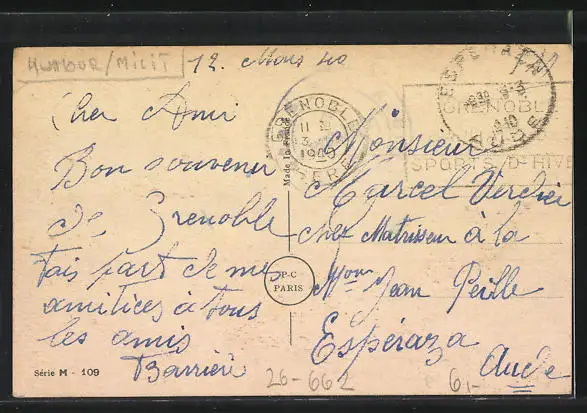 HUMOUR/MILIT
12. Mars 40
Cher Ami
Bon souvenir
de Grenoble
fais part de mes
amitiées à tous
les amis
Barrière
Monsieur
Marcel Verdier
chez
à la
Mon Jean Peille
Espéraza
Aude
GRENOBLE
11 
3
1940
ISERE
ESPERAZA
AUDE
GRENOBLE
SPORTS D'HIVE
Made in France
P-C
PARIS
Série M - 109
26-662
61-